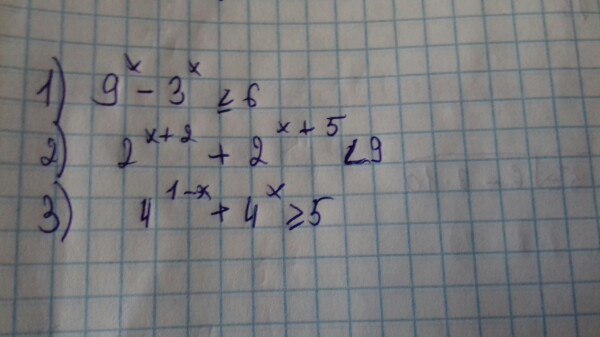 1) 9^x - 3^x ≥ 6
2) 2^{x+2} + 2^{x+5} < 9
3) 4^{1-x} + 4^x ≥ 5